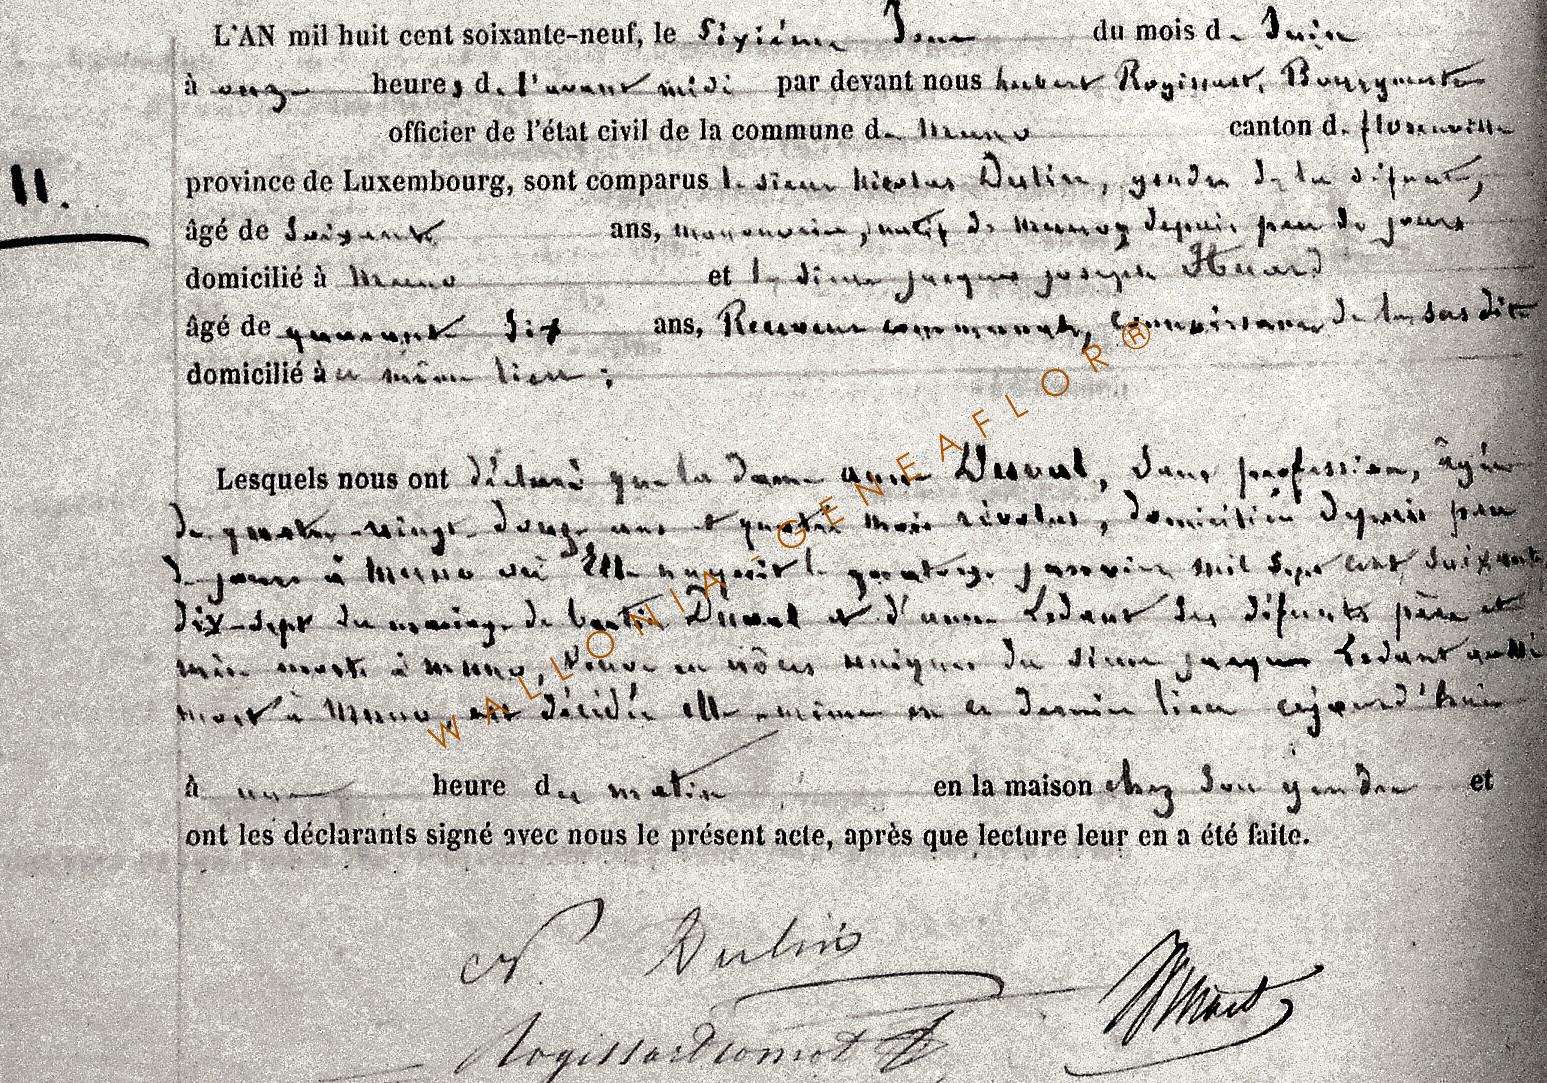 L'AN mil huit cent soixante-neuf, le sixième Jour du mois de Juin
à onze heures de l'avant midi par devant nous hubert Rogissart, Bourgmestre
officier de l'état civil de la commune de muno canton de florenville
11.
province de Luxembourg, sont comparus le sieur nicolas Dulin, gendre de la défunte,
âgé de soixante ans, manouvrier, natif de depuis peu de jours
domicilié à muno et le sieur jacques joseph Huard
âgé de quarante six ans, Receveur communal, connaissance de la sus dite
domicilié à ce même lieu ;
Lesquels nous ont déclaré que la dame anne Duval, sans profession, âgée
de quatre-vingt douze ans et quatre mois révolus, domiciliée depuis peu
de jours à muno où Elle naquit le quatorze janvier mil sept cent soixante
dix-sept du mariage de Duval et d'anne Ledant ses défunts père et
mère morts à muno, Veuve en nôces uniques du sieur jacques Ledant aussi
mort à muno, est décédée elle-même en ce dernier lieu aujourd'hui
à une heure du matin en la maison chez son gendre et
ont les déclarants signé avec nous le présent acte, après que lecture leur en a été faite.
N. Dulin
Huart
Rogissart
WALLONIA-GENEAFLOR®